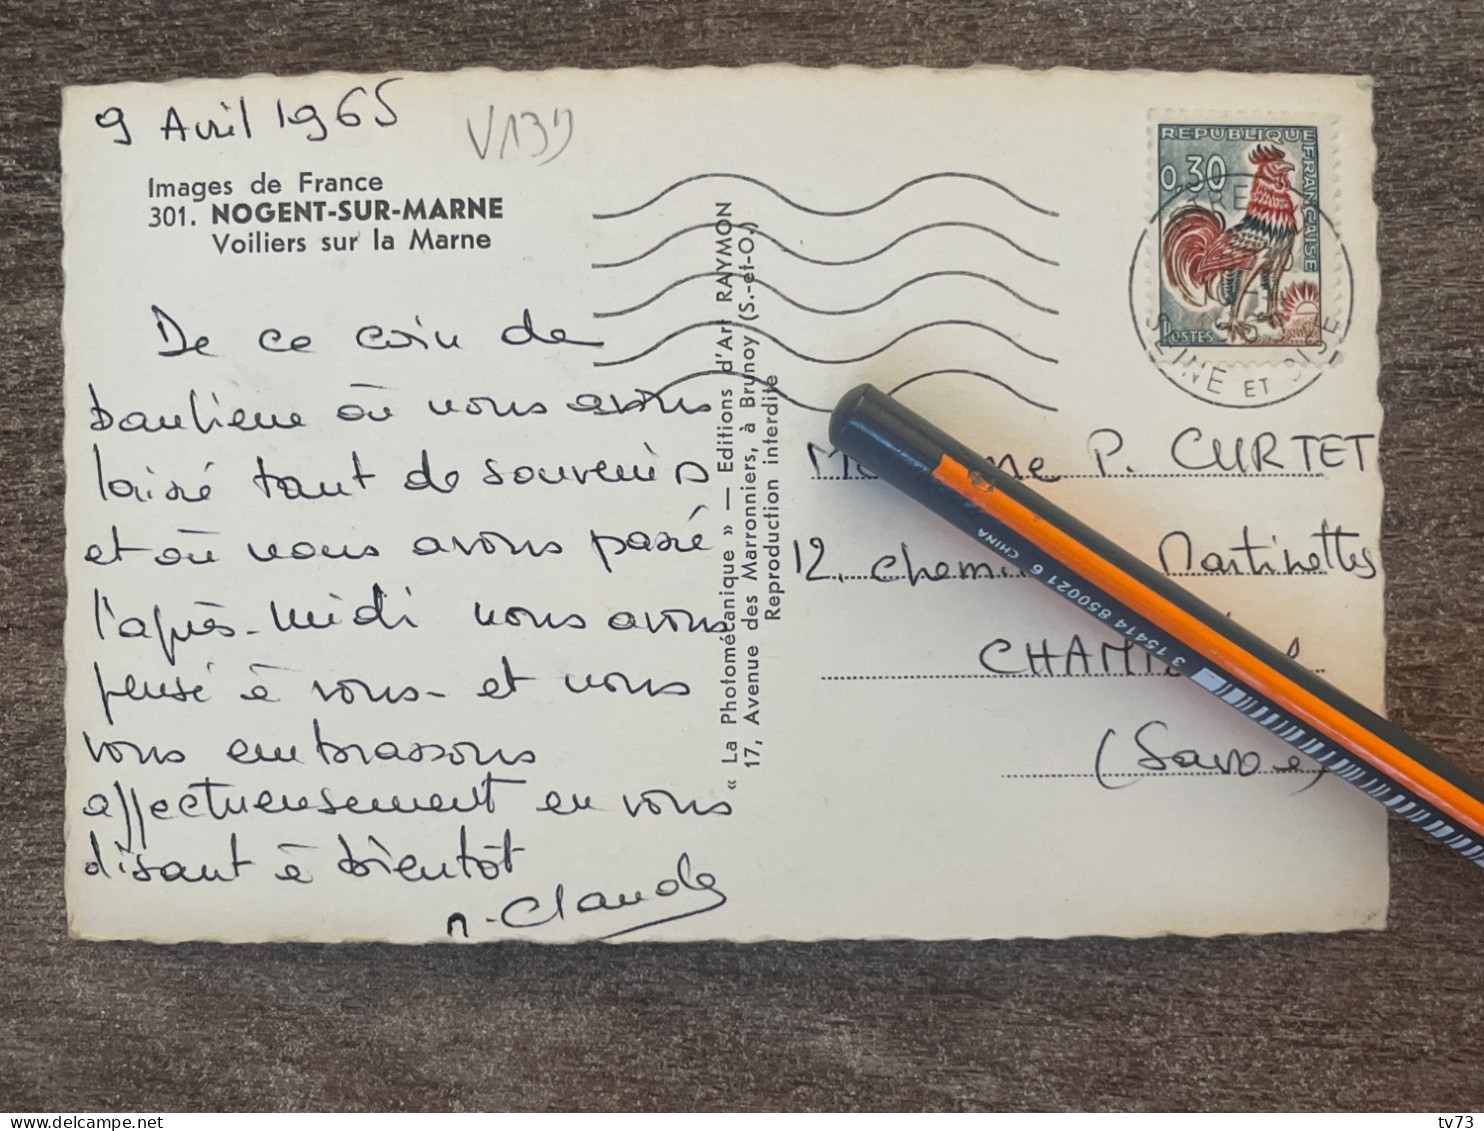 9 Avril 1965
V139
Images de France
301. NOGENT-SUR-MARNE
Voiliers sur la Marne
De ce coin de
banlieue où nous avons
laissé tant de souvenirs
et où nous avons passé
l'après-midi nous avons
pensé à vous - et nous
vous embrassons
affectueusement en vous
disant à bientôt
n-Claude
« La Photomécanique » — Editions d'Art RAYMON
17, Avenue des Marronniers, à Brunoy (S.-et-O.)
Reproduction interdite
REPUBLIQUE FRANÇAISE
0,30
POSTES
SEINE ET OISE
P. CURTET
12, chemin Martinettes
(Savoie)
3 15414 850021 6 CHINA
delcampe.net
tv73